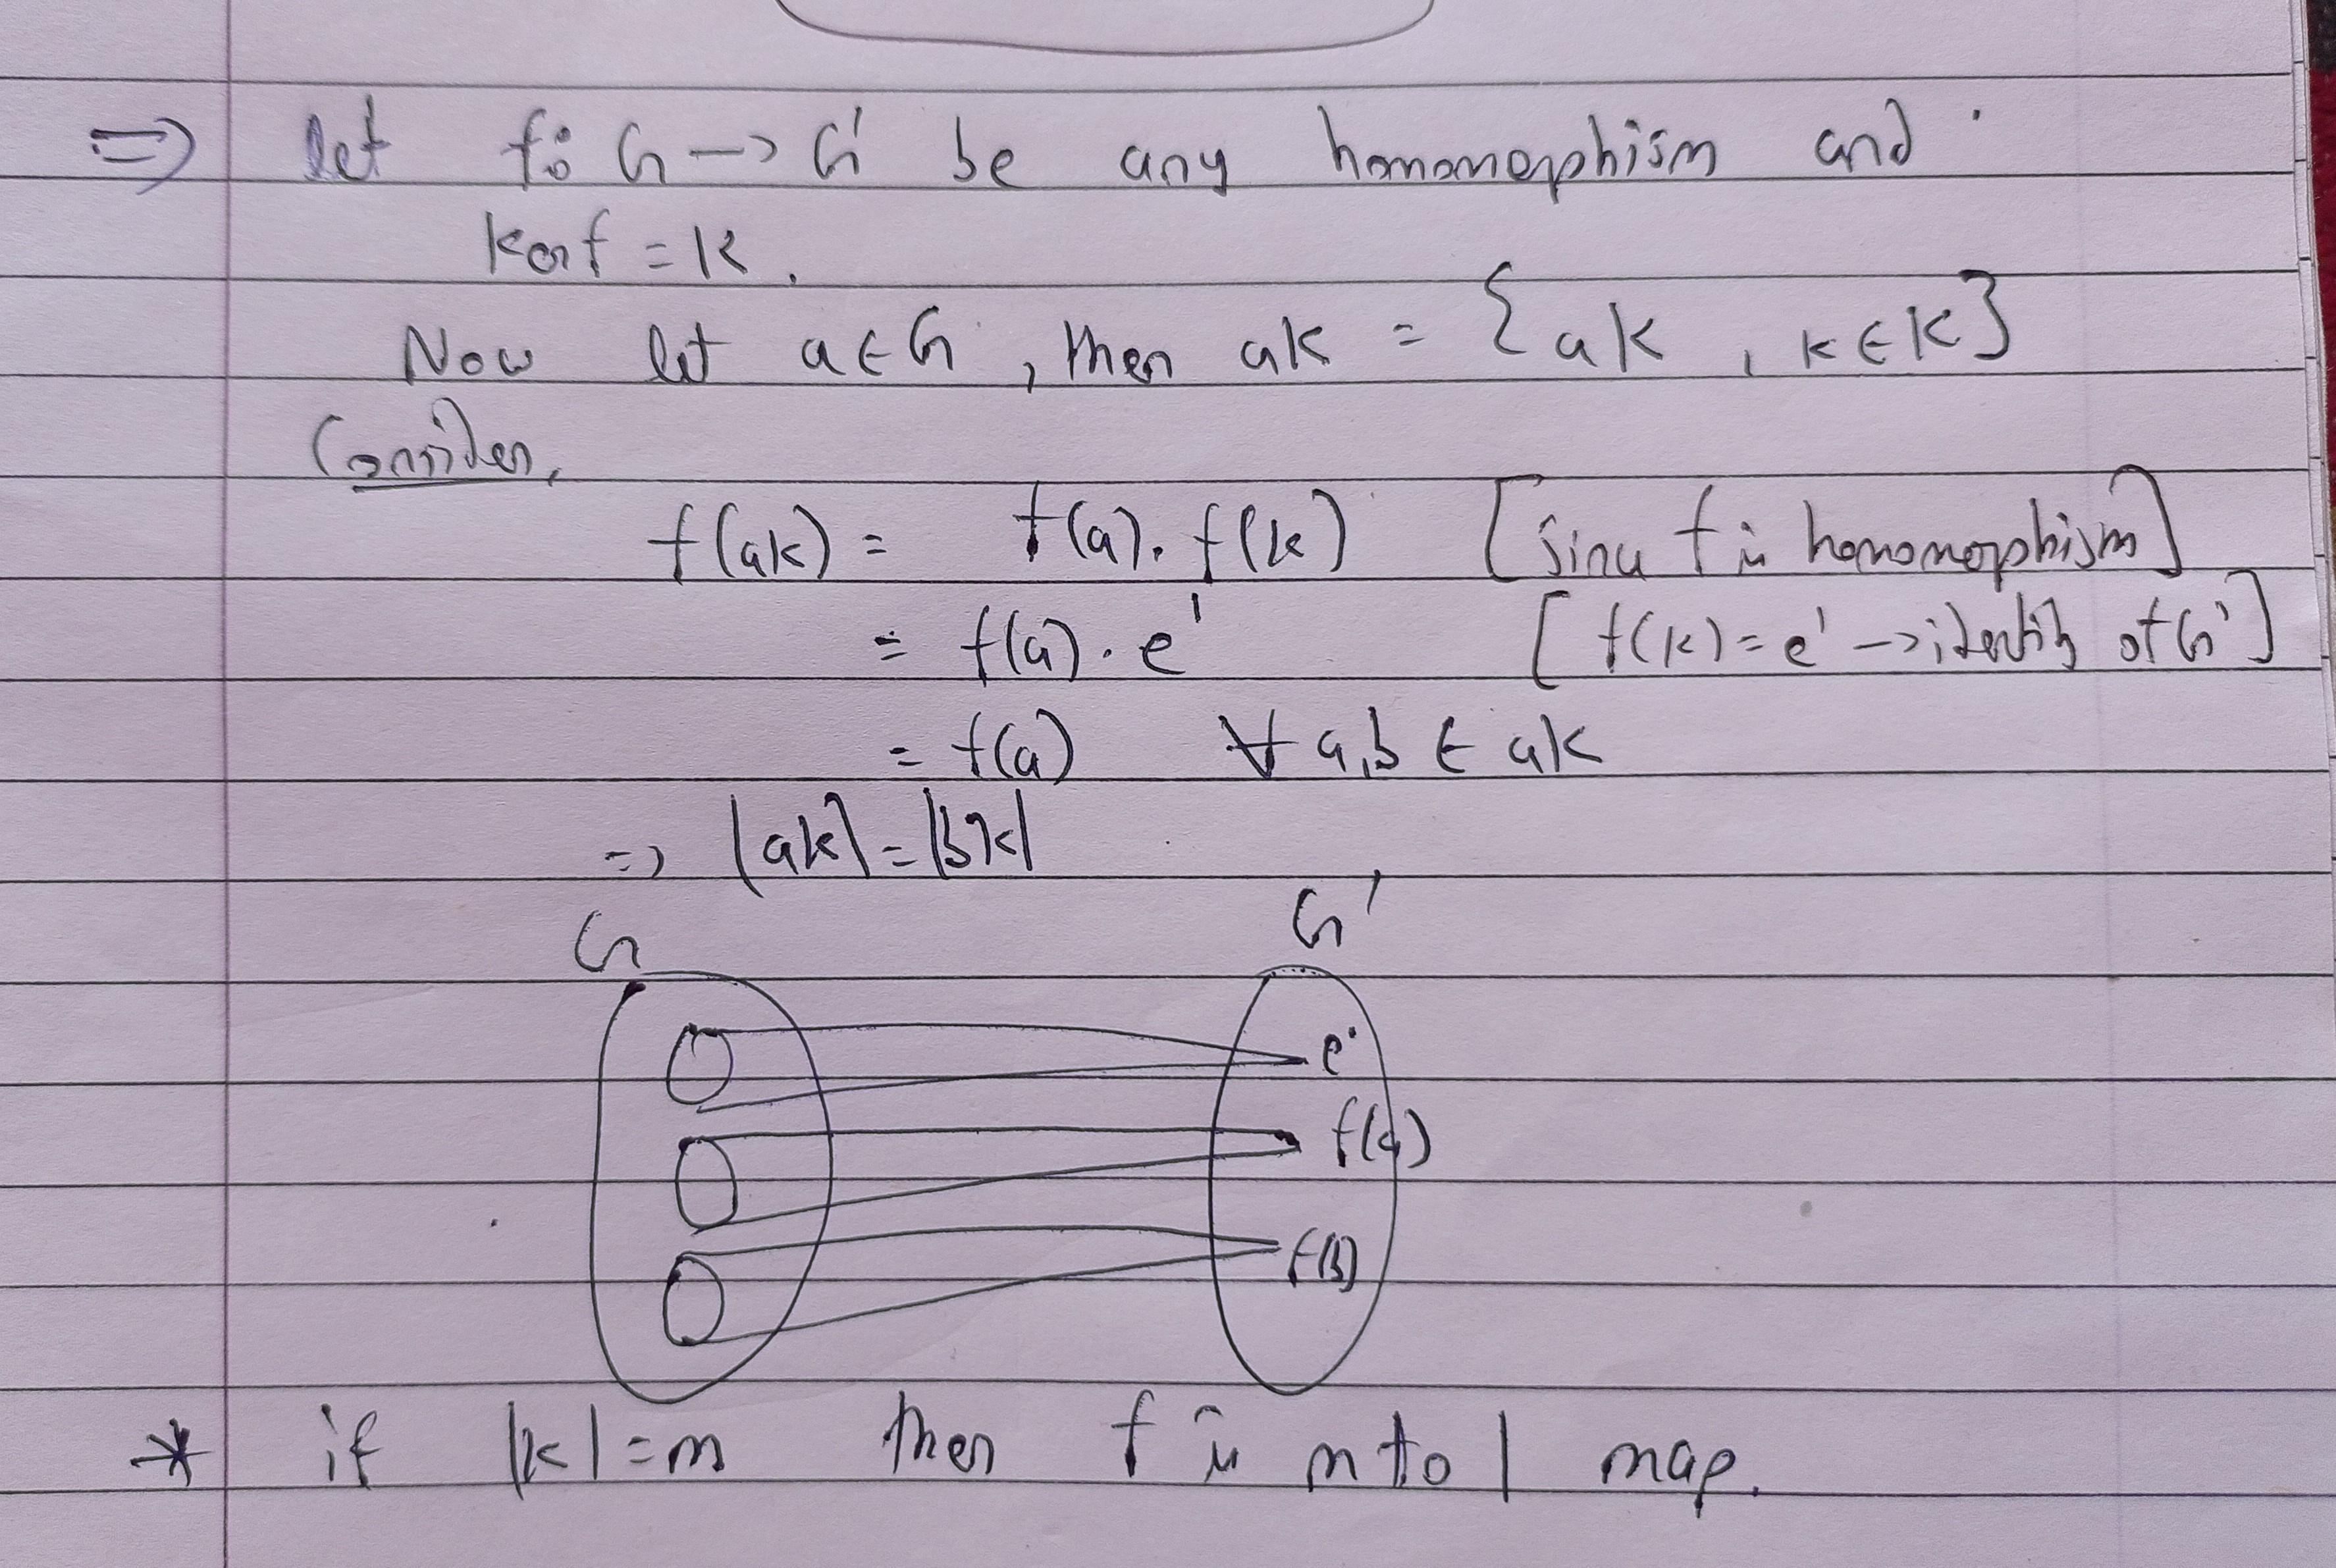 => let f: G -> G' be any homomorphism and
Kerf = K.
Now let a ∈ G, then aK = {ak , k ∈ K}
Consider,
f(ak) = f(a). f(k) [Since f is homomorphism]
= f(a). e' [f(k) = e' -> identity of G']
= f(a) ∀ a,b ∈ aK
=> |aK| = |bK|
G G'
e'
f(a)
f(b)
* if |K| = m then f is m to 1 map.